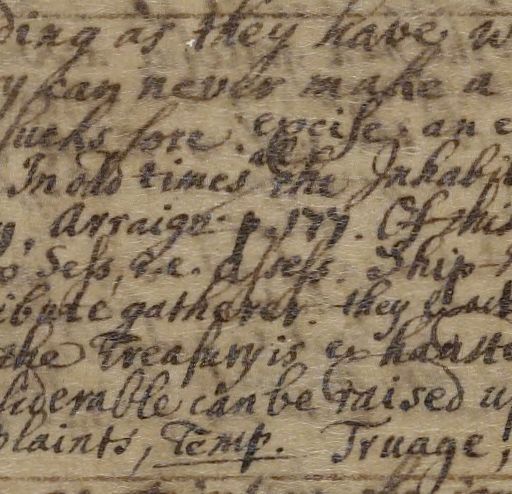 ding as they have
y can never make a
sore. excise: an
In old times all the Inhabi
Arraign. p. 177. Of his
Sess, i.e. Assess. Ship
ibute gatherer. they exact
the Treasury is exhauste
siderable can be raised up
plaints, Temp. Truage,